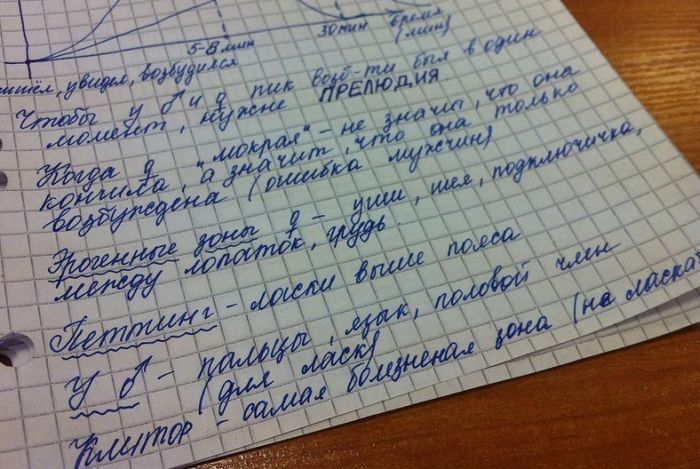 5-8 мин
30 мин
время
(мин)
увидел, возбудился
Чтобы у ♂ и ♀ пик возб-ти был в один
момент, нужне ПРЕЛЮДИЯ
Когда ♀ "мокрая" - не значи, что она
кончила, а значит, что она только
возбуждена (ошибка мужчин)
Эрогенные зоны ♀ - уши, шея, подключичка,
между лопаток, грудь.
Петтинг - ласки выше пояса
У ♂ - пальцы, язык, половой член
(для ласк)
Клитор - самая болезненая зона (не ласкат